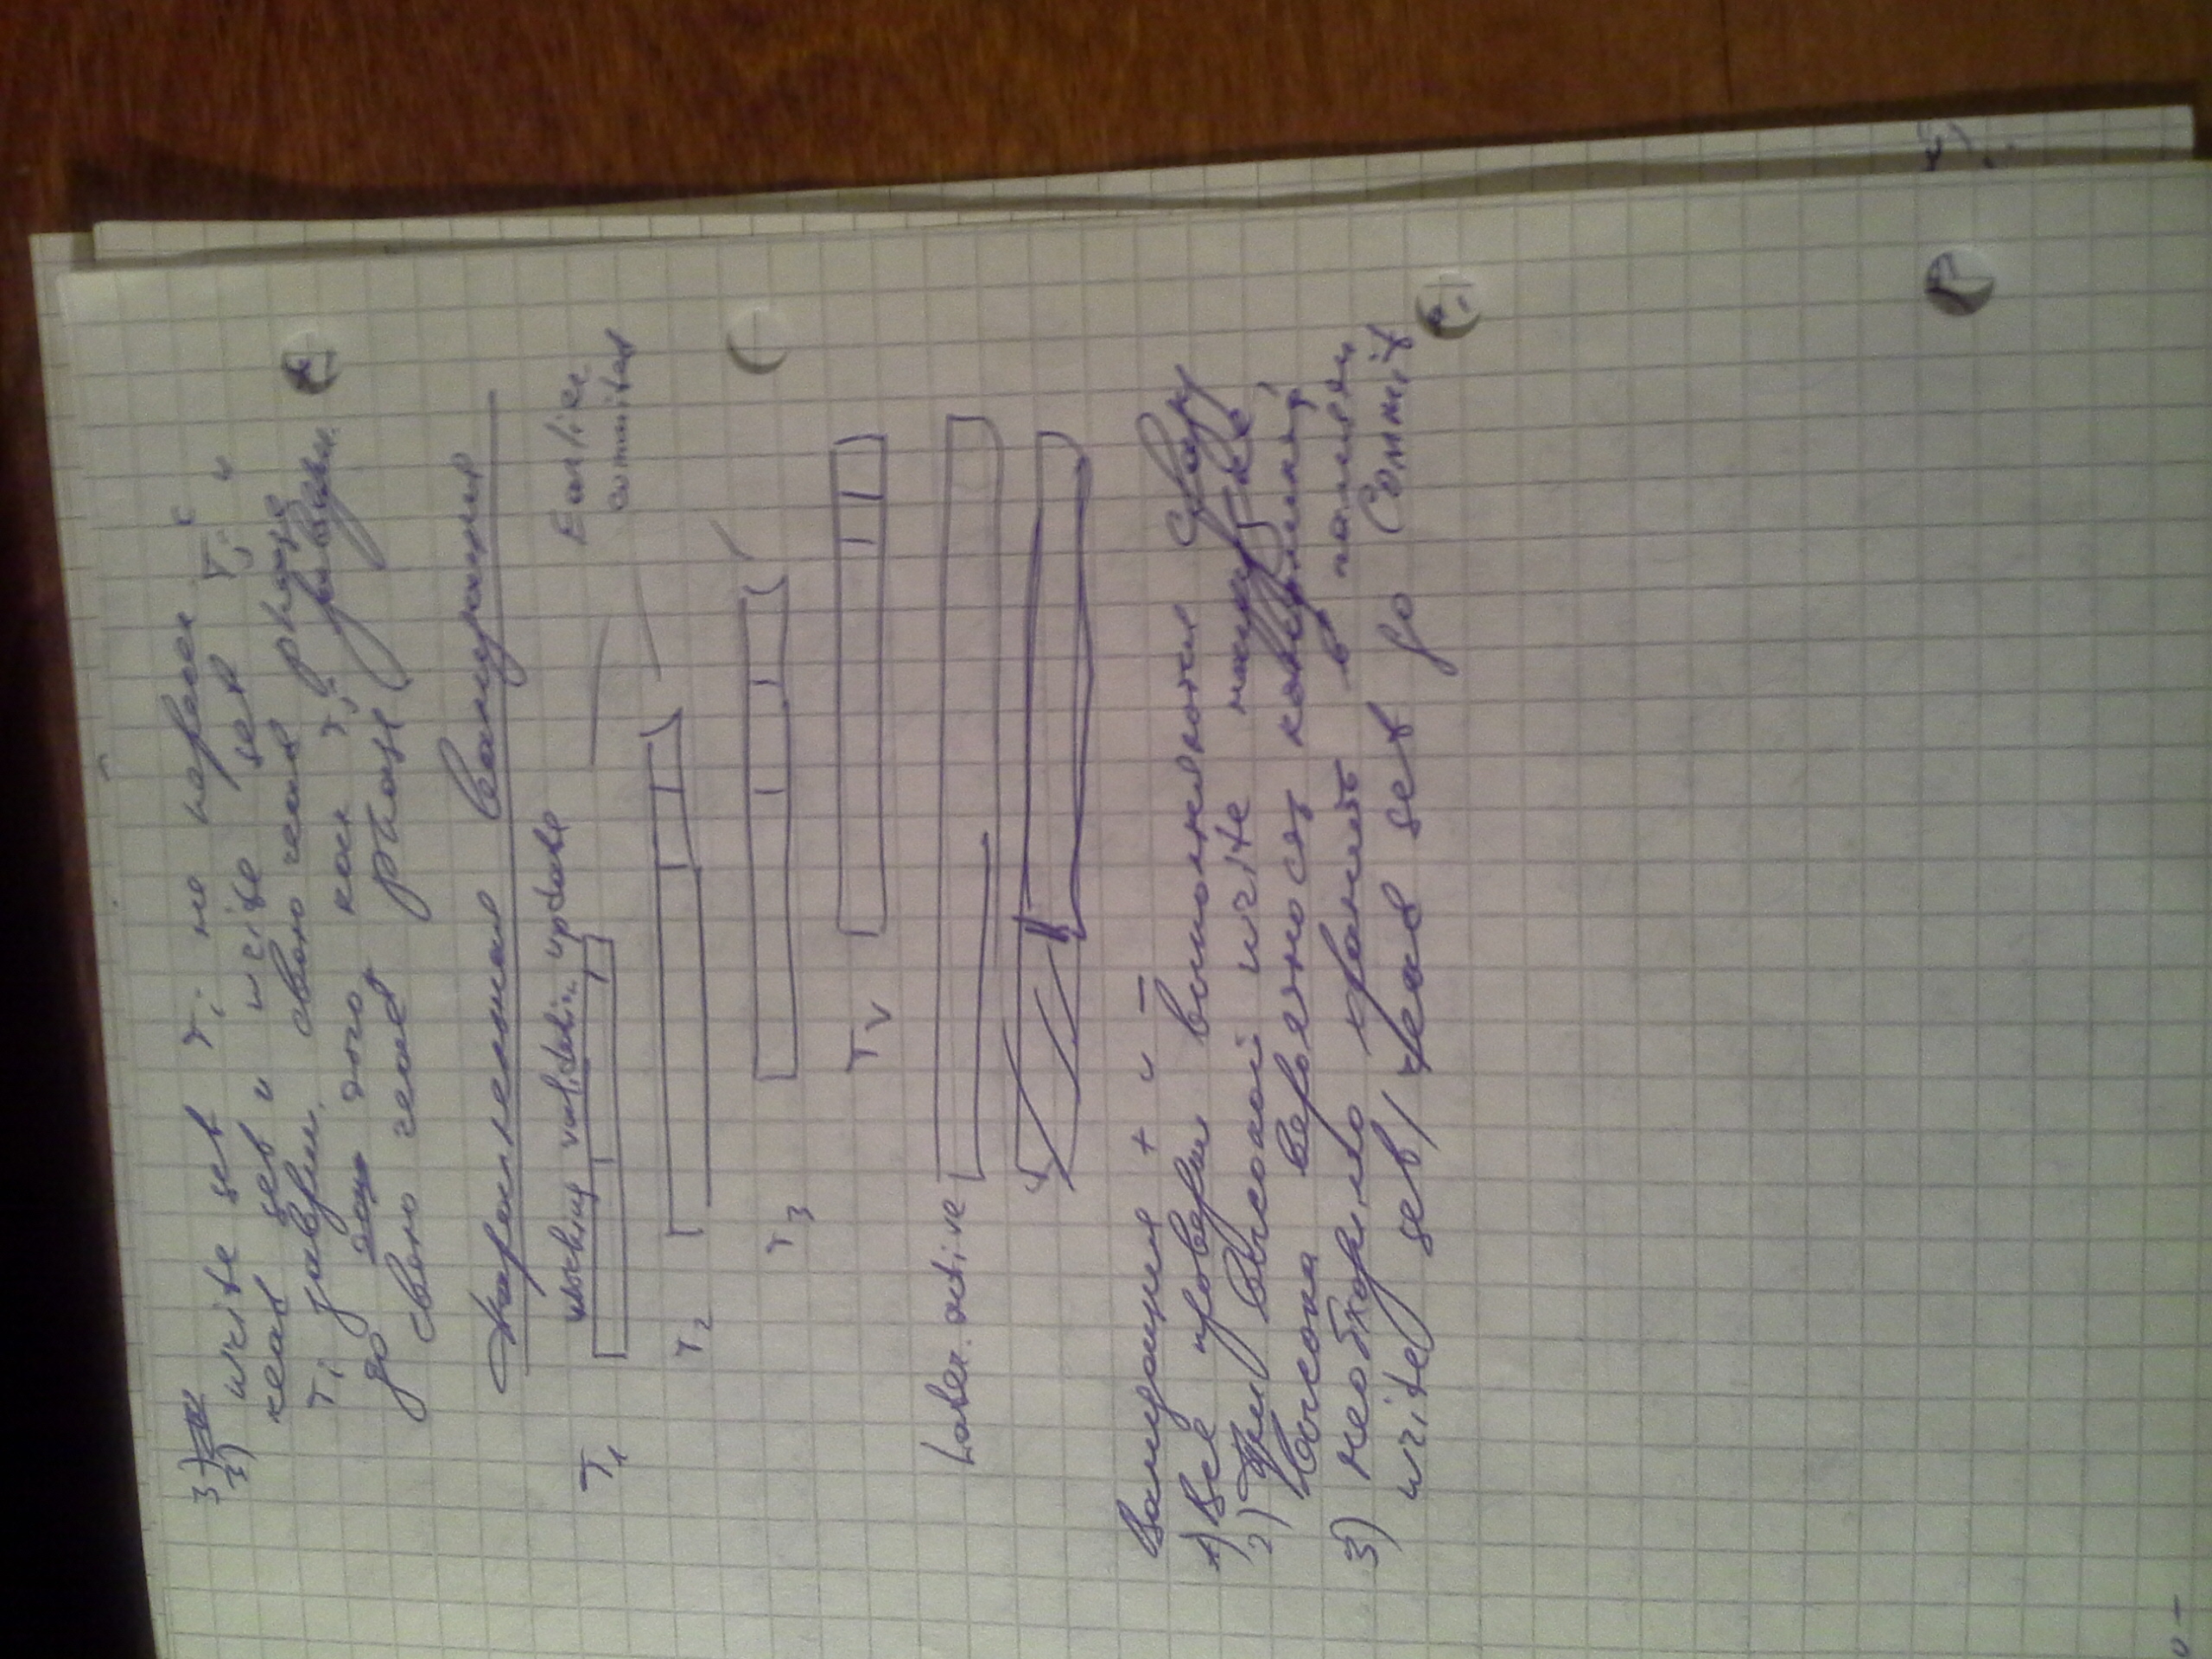 3)
3) write set Ti не перес. с
read set и write set Tj и
Ti заверш. свою read phase
до того как Tj заверш.
свою read phase
Параллельная валидация
working validation update
Earlier
committed
T1
T2
T3
Tv
Later active
Валидация + и –
1) Все проверки выполняются сразу
2) При высокой write нагрузке,
высока вероятность
3) Необходимо хранить в памяти
write set / read set до Commit